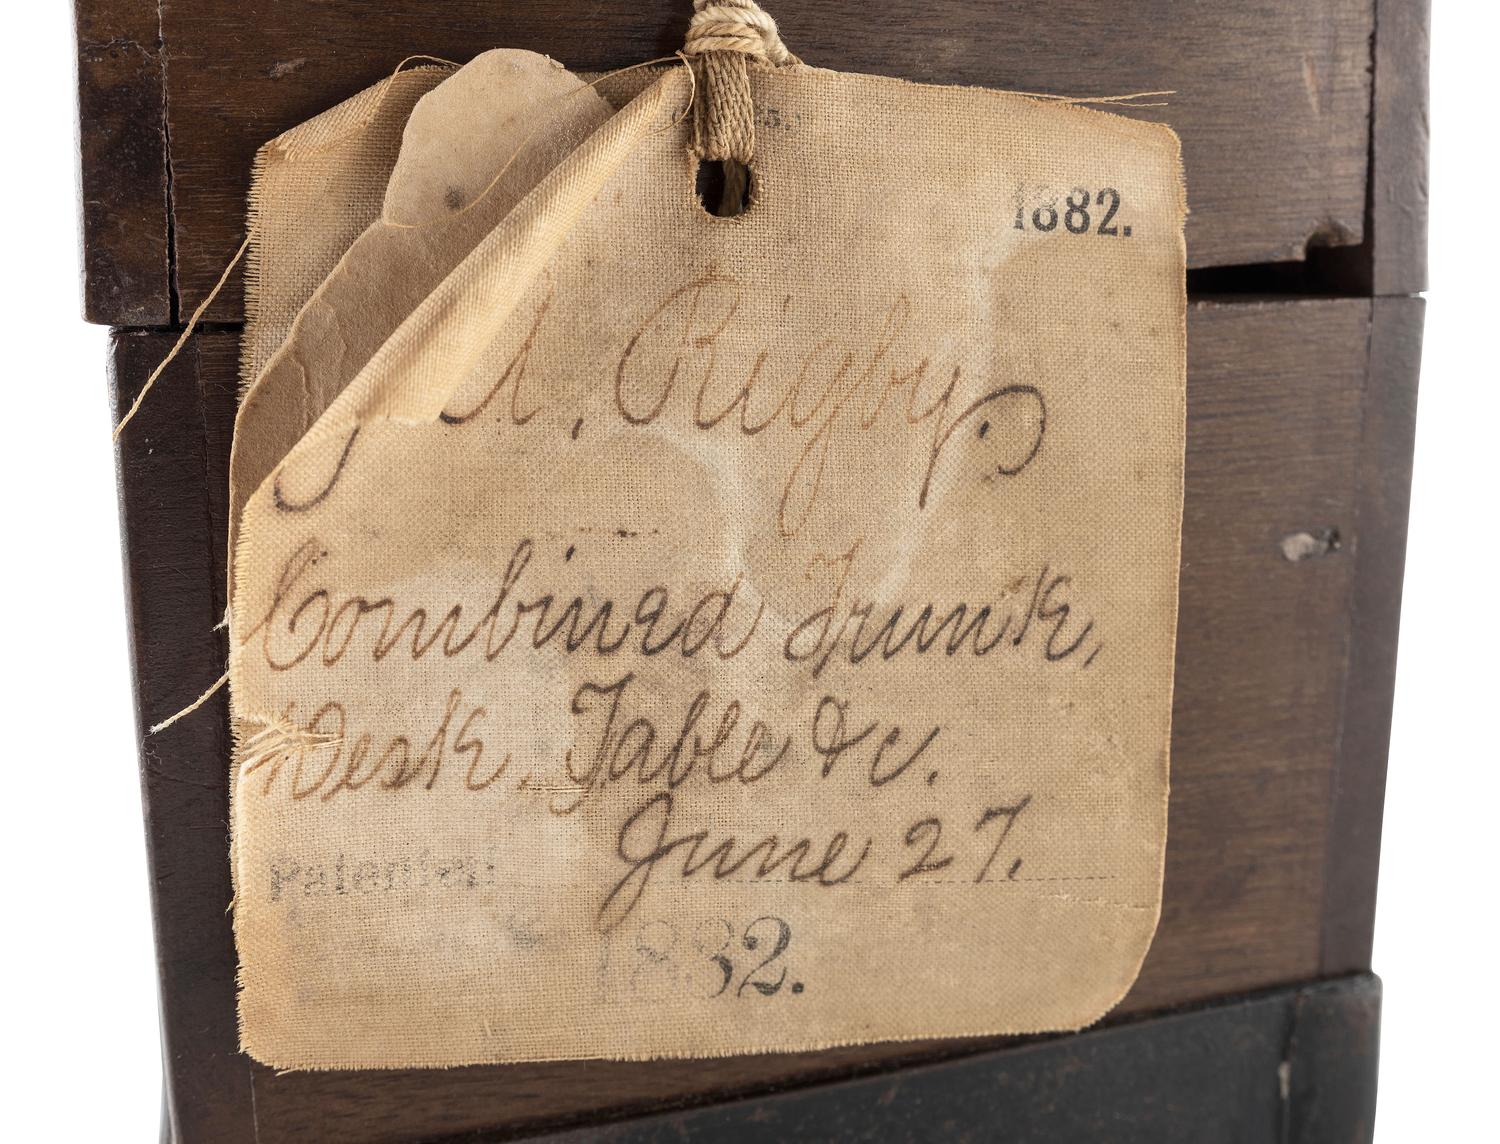 1882.
A. Rigby,
Combined Trunk,
Desk, Table &c.
June 27.
Patented
1882.